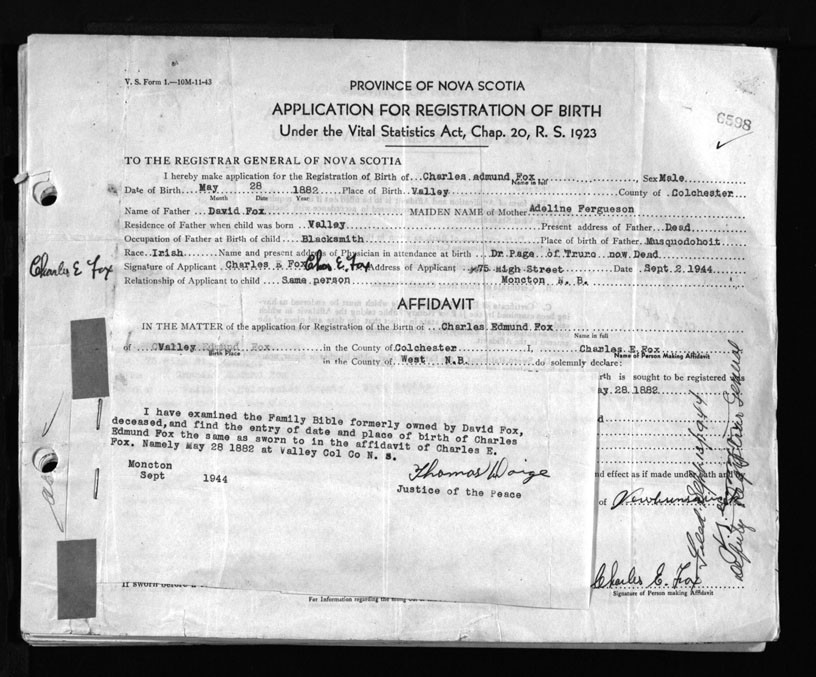 V. S. Form 1.—10M-11-43
PROVINCE OF NOVA SCOTIA
APPLICATION FOR REGISTRATION OF BIRTH
Under the Vital Statistics Act, Chap. 20, R. S. 1923
6598
TO THE REGISTRAR GENERAL OF NOVA SCOTIA
I hereby make application for the Registration of Birth of Charles admund Fox Sex Male
Name in full
Date of Birth May 28 1882 Place of Birth Valley County of Colchester
Month Date Year
Name of Father David Fox MAIDEN NAME of Mother Adeline Fergueson
Residence of Father when child was born Valley Present address of Father Dead
Occupation of Father at Birth of child Blacksmith Place of Birth of Father Musquodohoit
Race Irish Name and present address of Physician in attendance at birth Dr Page of Truro now Dead
Charles E Fox
Signature of Applicant Charles E Fox Chas E. Fox Address of Applicant 75 High Street Date Sept. 2 1944
Relationship of Applicant to child Same person Moncton N. B.
AFFIDAVIT
IN THE MATTER of the application for Registration of the Birth of Charles Edmund Fox
Name in full
of Valley Edmund Fox in the County of Colchester I, Charles E Fox
Birth Place Name of Person Making Affidavit
in the County of West N.B. do solemnly declare:
rth is sought to be registered was
ay 28 1882
I have examined the Family Bible formerly owned by David Fox,
deceased, and find the entry of date and place of birth of Charles
Edmund Fox the same as sworn to in the affidavit of Charles E.
Fox. Namely May 28 1882 at Valley Col Co N. S.
Moncton
Sept 1944
Justice of the Peace
d effect as if made under oath and
of Newbrunswick
Deputy Registrar General
If sworn before
For Information regarding the
Charles E. Fox
Signature of Person making Affidavit